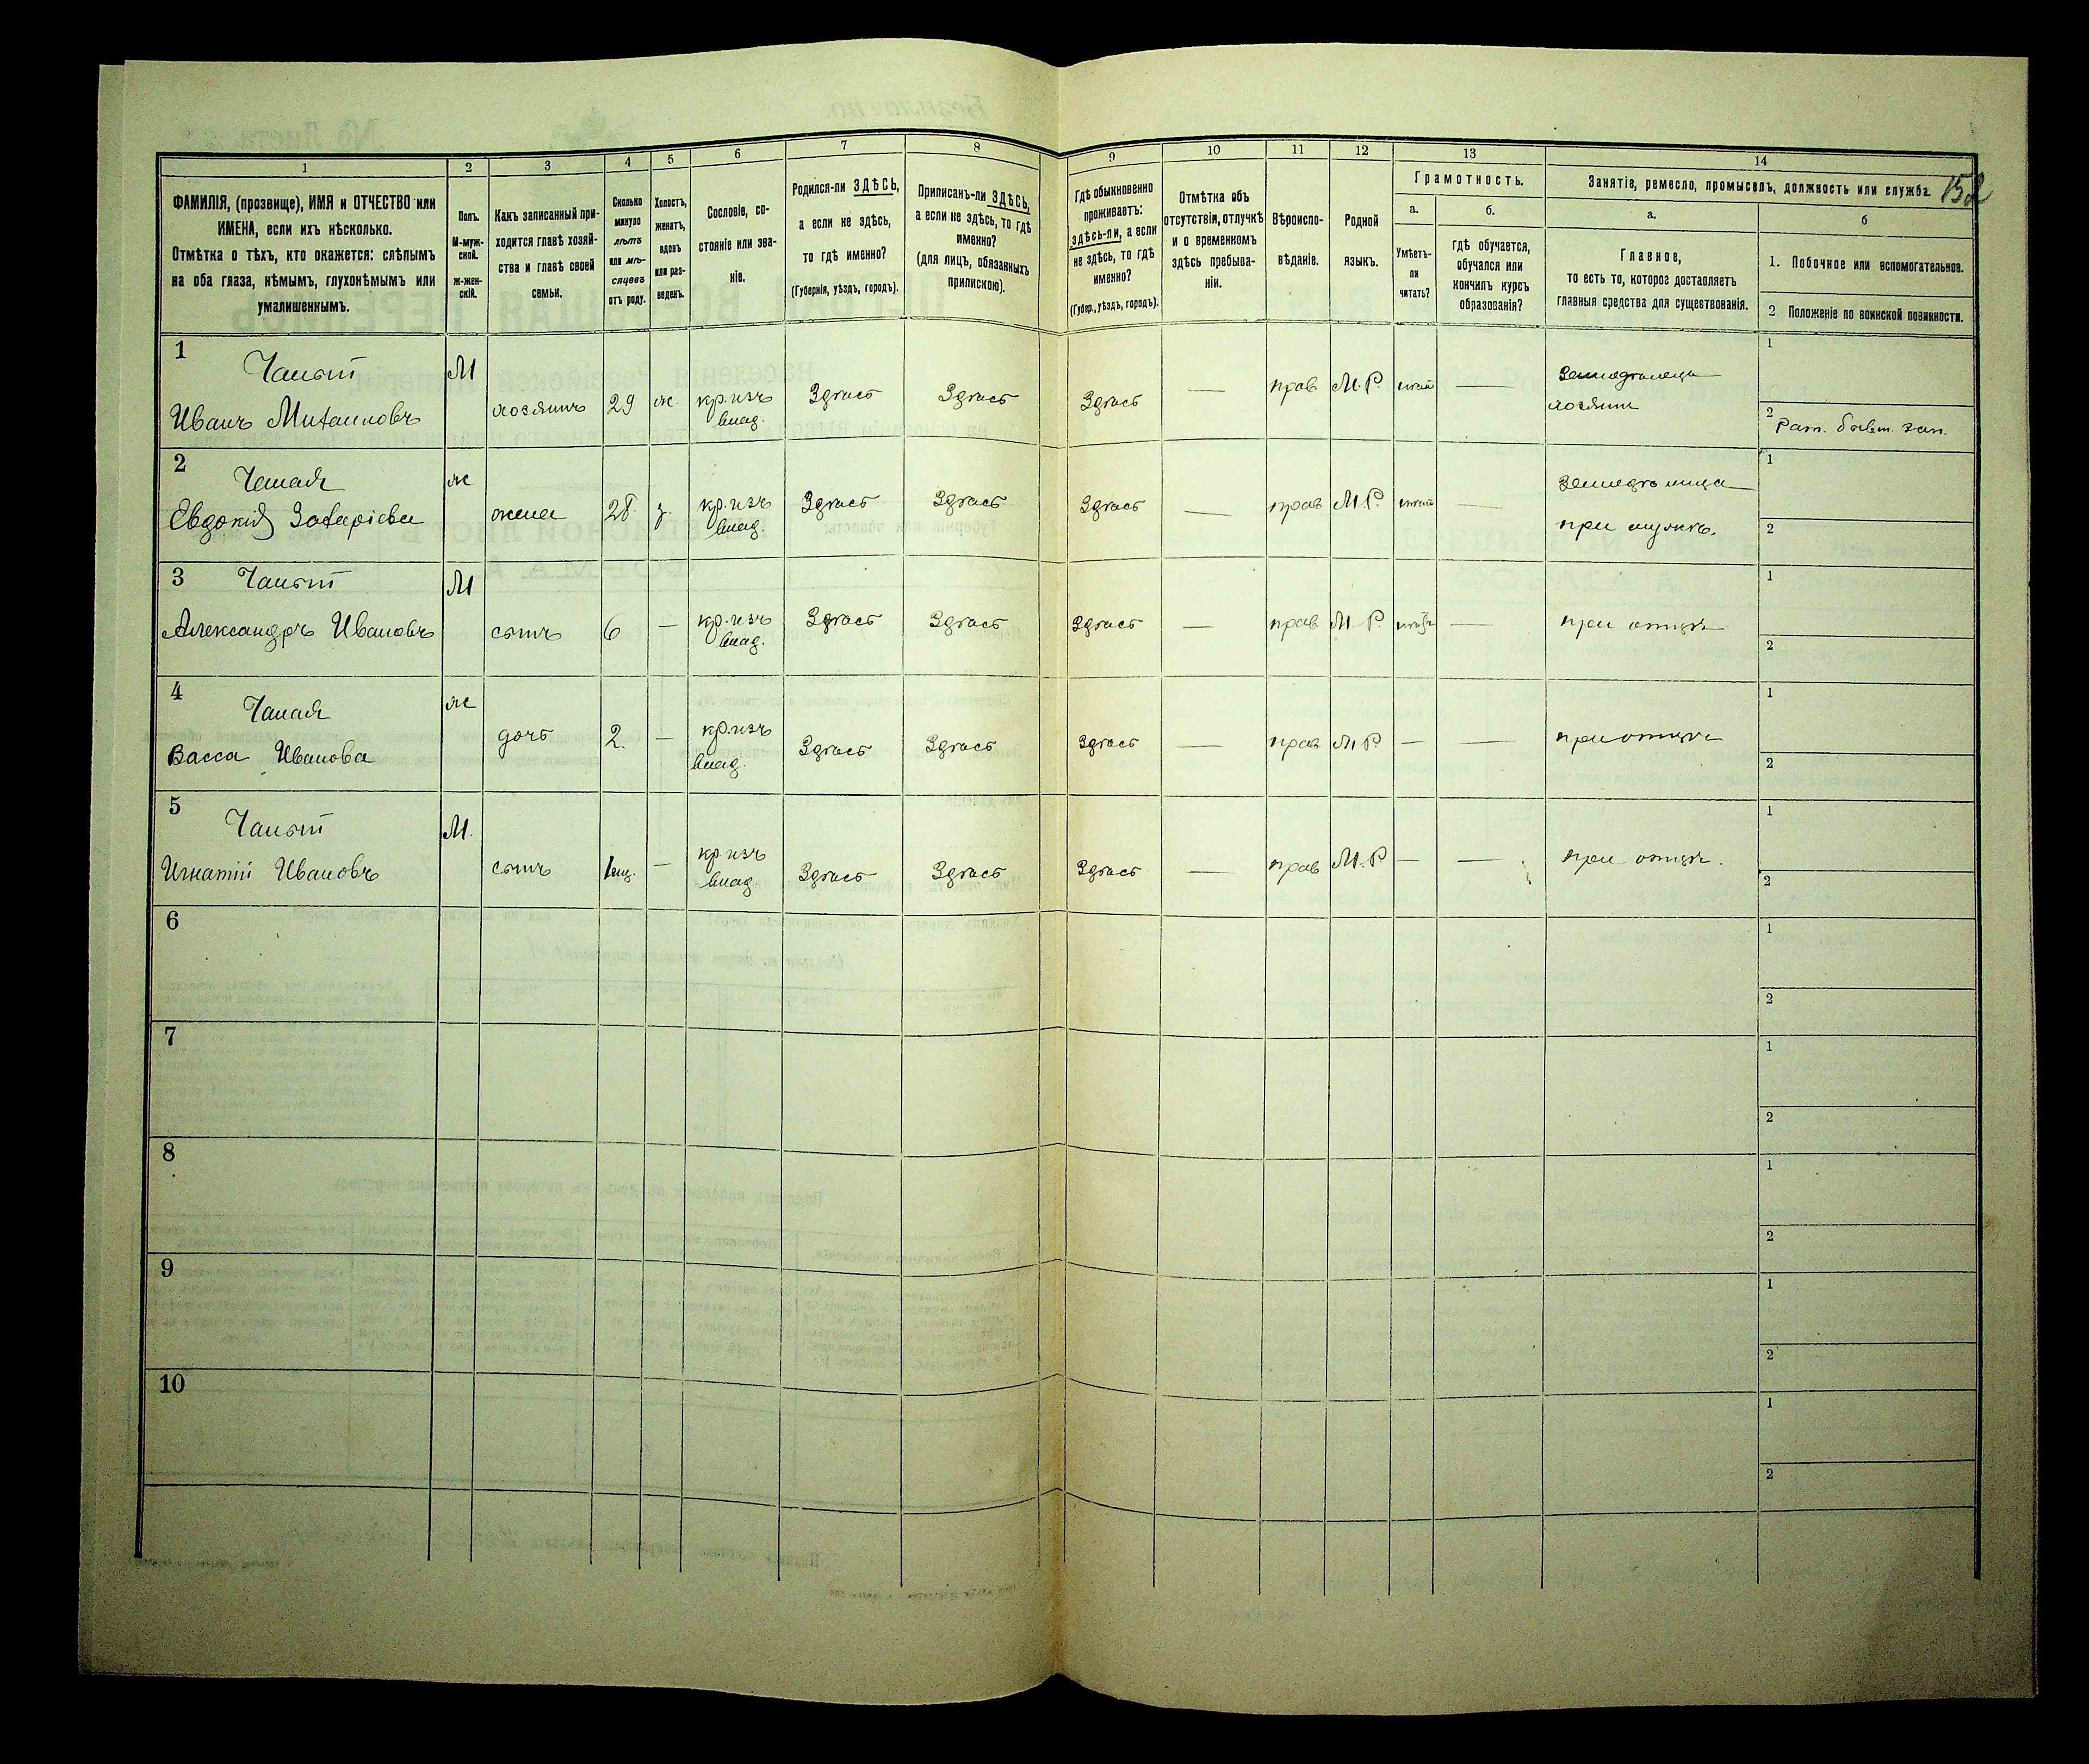 152
1
2
3
4
5
6
7
8
9
10
11
12
13
14
ФАМИЛІЯ, (прозвище), ИМЯ и ОТЧЕСТВО или
ИМЕНА, если ихъ нѣсколько.
Отмѣтка о тѣхъ, кто окажется: слѣпымъ
на оба глаза, нѣмымъ, глухонѣмымъ или
умалишеннымъ.
Полъ.
М-муж-
ской.
ж-жен-
скій.
Какъ записанный при-
ходится главѣ хозяй-
ства и главѣ своей
семьи.
Сколько
минуло
лѣтъ
или мѣ-
сяцевъ
отъ роду.
Холостъ,
женатъ,
вдовъ
или раз-
веденъ.
Сословіе, со-
стояніе или зва-
ніе.
Родился-ли ЗДѢСЬ,
а если не здѣсь,
то гдѣ именно?
(Губернія, уѣздъ, городъ).
Приписанъ-ли ЗДѢСЬ,
а если не здѣсь, то гдѣ
именно?
(для лицъ, обязанныхъ
припискою).
Гдѣ обыкновенно
проживаетъ:
здѣсь-ли, а если
не здѣсь, то гдѣ
именно?
(Губер., уѣздъ, городъ).
Отмѣтка объ
отсутствіи, отлучкѣ
и о временномъ
здѣсь пребыва-
ніи.
Вѣроиспо-
вѣданіе.
Родной
языкъ.
Грамотность.
а.
Умѣетъ-
ли
читать?
б.
гдѣ обучается,
обучался или
кончилъ курсъ
образованія?
Занятіе, ремесло, промыселъ, должность или служба.
а.
Главное,
то есть то, которое доставляетъ
главныя средства для существованія.
б
1. Побочное или вспомогательное.
2 Положеніе по воинской повинности.
1
Иванъ Михаиловъ
М
хозяинъ
29
ж.
кр. изъ
влад.
Здѣсь
Здѣсь
Здѣсь
—
прав
М. Р.
—
Земледѣлецъ
хозяинъ
1
2
2
Евдокія Захаріева
ж
жена
28.
з.
кр. изъ
влад.
Здѣсь
Здѣсь
Здѣсь
—
прав
М. Р.
—
при мужѣ.
1
2
3
Александръ Ивановъ
М
сынъ
6
—
кр. изъ
влад.
Здѣсь
Здѣсь
Здѣсь
—
прав
М. Р.
—
при отцѣ
1
2
4
Васса Иванова
ж
дочь
2.
—
кр. изъ
влад.
Здѣсь
Здѣсь
Здѣсь
—
прав
М Р
—
—
при отцѣ
1
2
5
Игнатій Ивановъ
М.
сынъ
—
кр. изъ
влад
Здѣсь
Здѣсь
Здѣсь
—
прав
М. Р
—
—
при отцѣ.
1
2
6
1
2
7
1
2
8
1
2
9
1
2
10
1
2